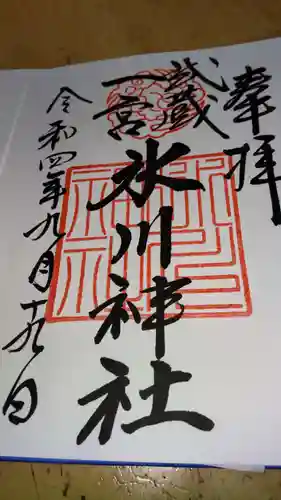 奉拝
武蔵
一宮
氷川神社
令和四年九月十九日